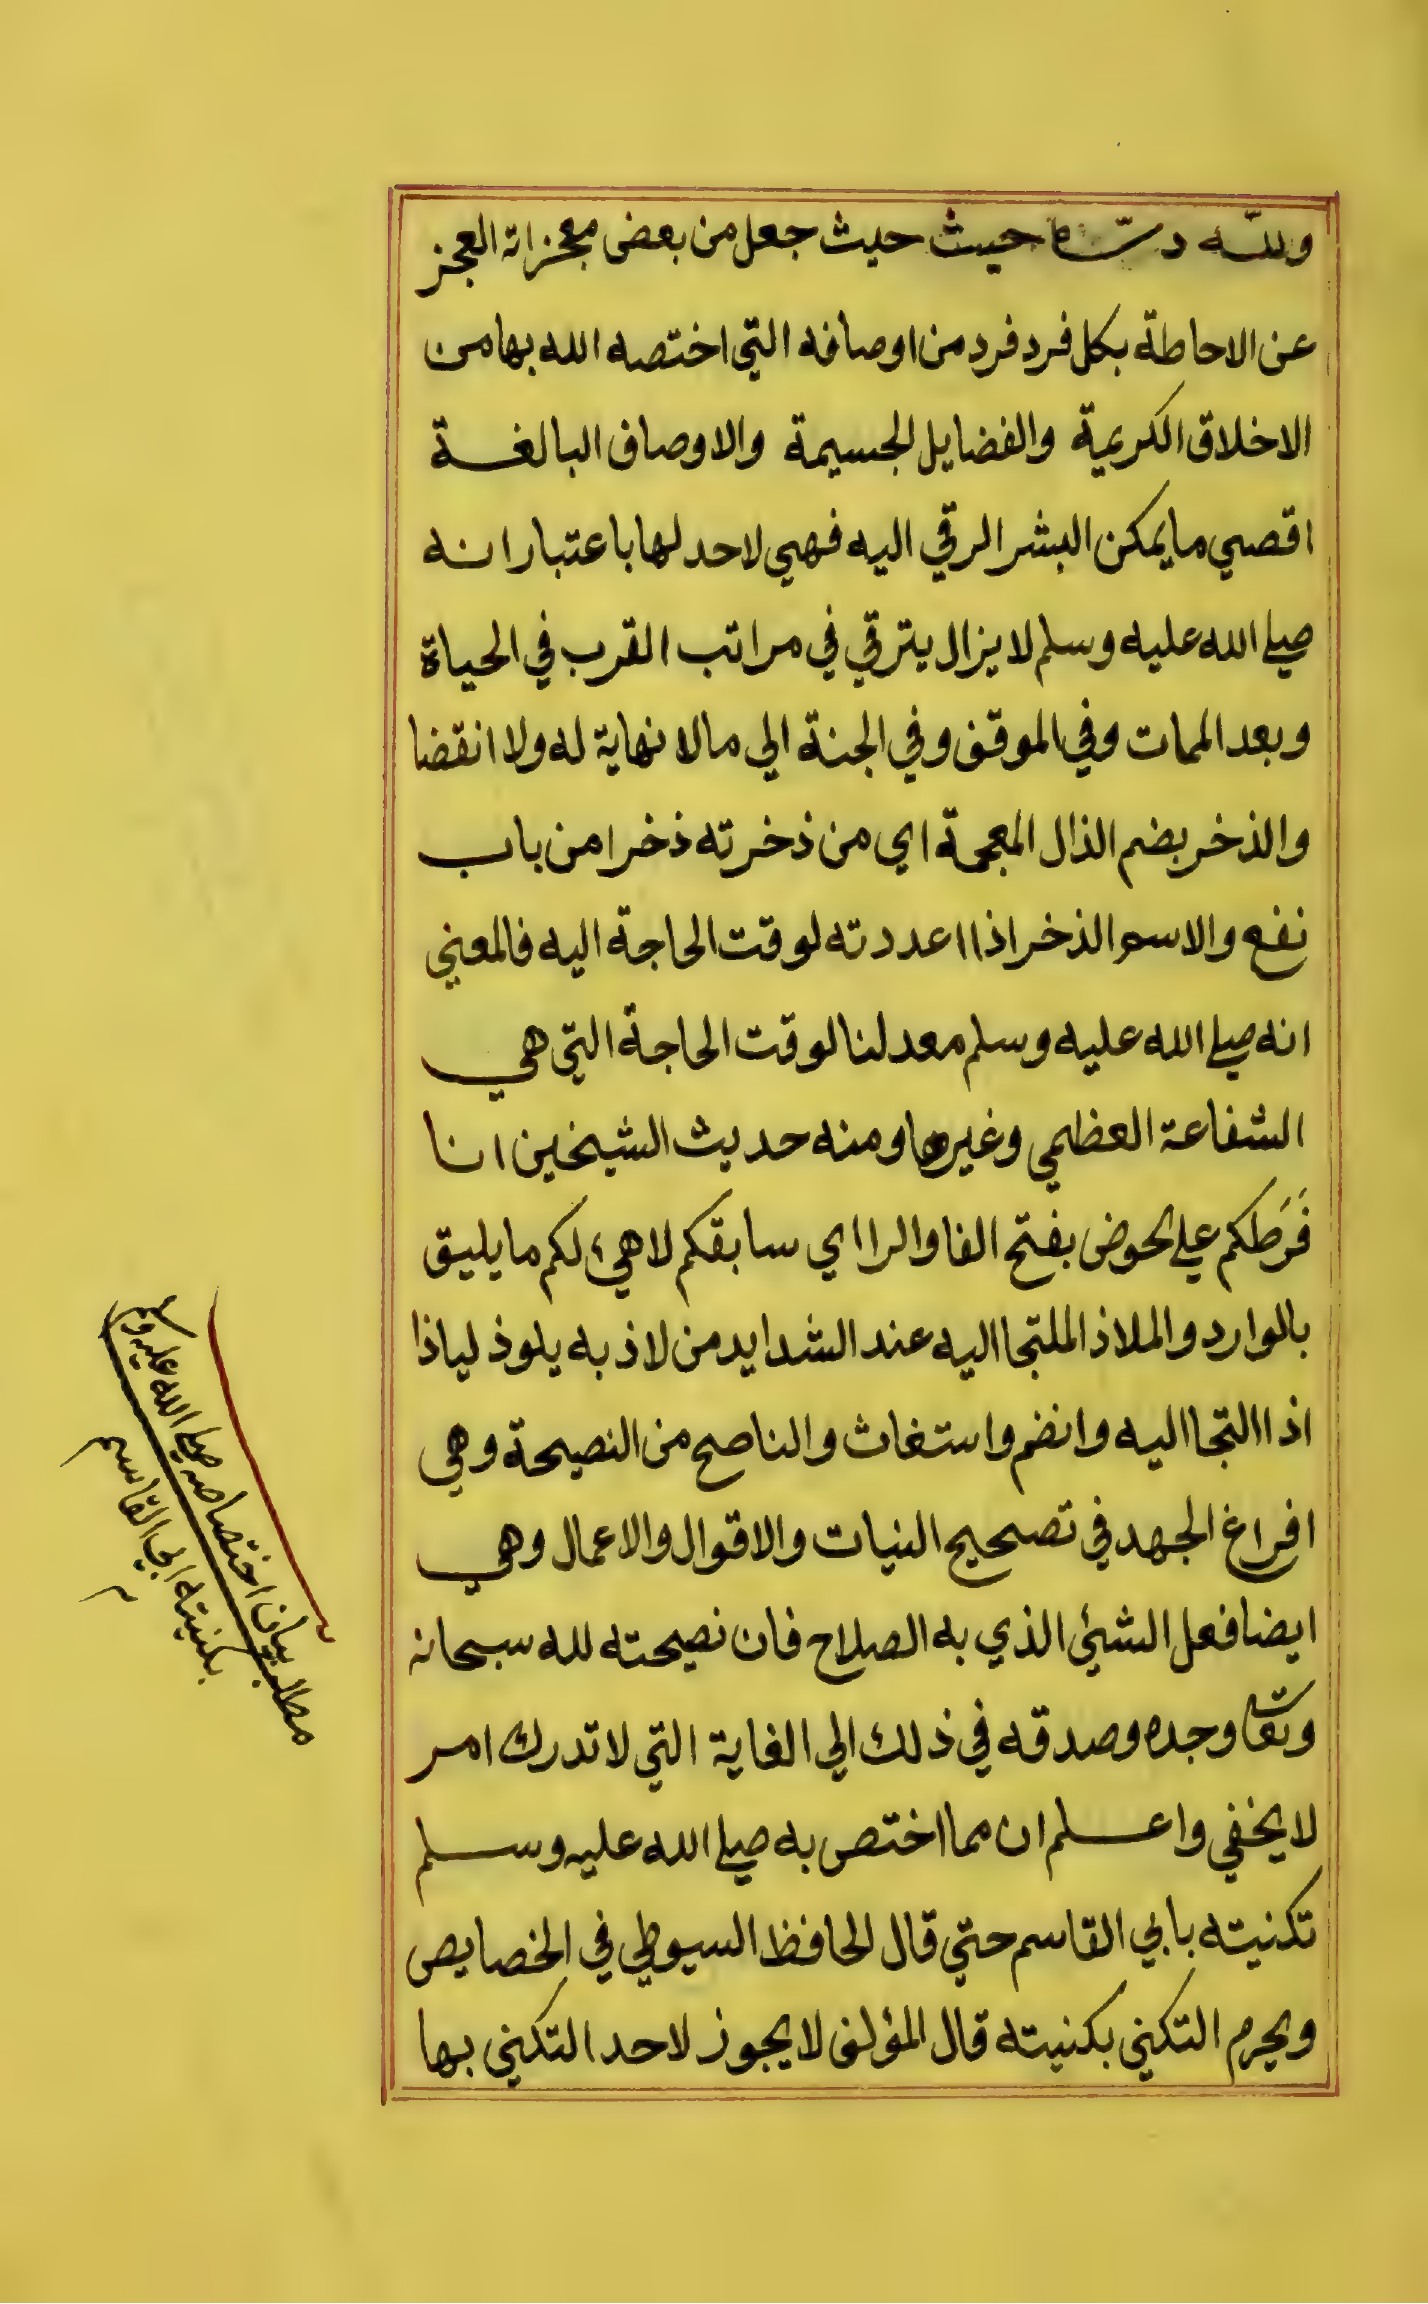 ولله دره حيث حيث جعل من بعض معجزاته العجز
عن الاحاطة بكل فرد فرد من اوصافه التي اختصه الله بها من
الاخلاق الكريمة والفضايل الجسيمة والاوصاف البالغة
اقصي ما يمكن البشر الرقي اليه فهي لا حد لها باعتبار انه
صلي الله عليه وسلم لا يزال يترقي في مراتب القرب في الحياة
وبعد الممات وفي الموقف وفي الجنة الي مالا نهاية له ولا انقضا
والذخر بضم الذال المعجمة اي من ذخرته ذخرا من باب
نفع والاسم الذخر اذا اعددته لوقت الحاجة اليه فالمعني
انه صلي الله عليه وسلم معد لنا لوقت الحاجة التي هي
الشفاعة العظمي وغيرها ومنه حديث الشيخين انا
فَرَطكم علي الحوض بفتح الفا والرا اي سابقكم لاهيئ لكم ما يليق
بالوارد والملاذ الملتجا اليه عند الشدايد من لاذ به يلوذ لياذا
اذا التجا اليه وانضم واستغاث والناصح من النصيحة وهي
افراغ الجهد في تصحيح النيات والاقوال والاعمال وهي
ايضا فعل الشيئ الذي به الصلاح فان نصيحته لله سبحانه
وتعا وجده وصدقه في ذلك الي الغاية التي لا تدرك امر
لا يخفي واعلم ان مما اختص به صلي الله عليه وسلم
تكنيته بابي القاسم حتي قال الحافظ السيوطي في الخصايص
ويحرم التكني بكنيته قال المؤلف لا يجوز لاحد التكني بها
مطلب بيان اختصاصه صلي الله عليه وسلم
بكنيته ابي القاسم